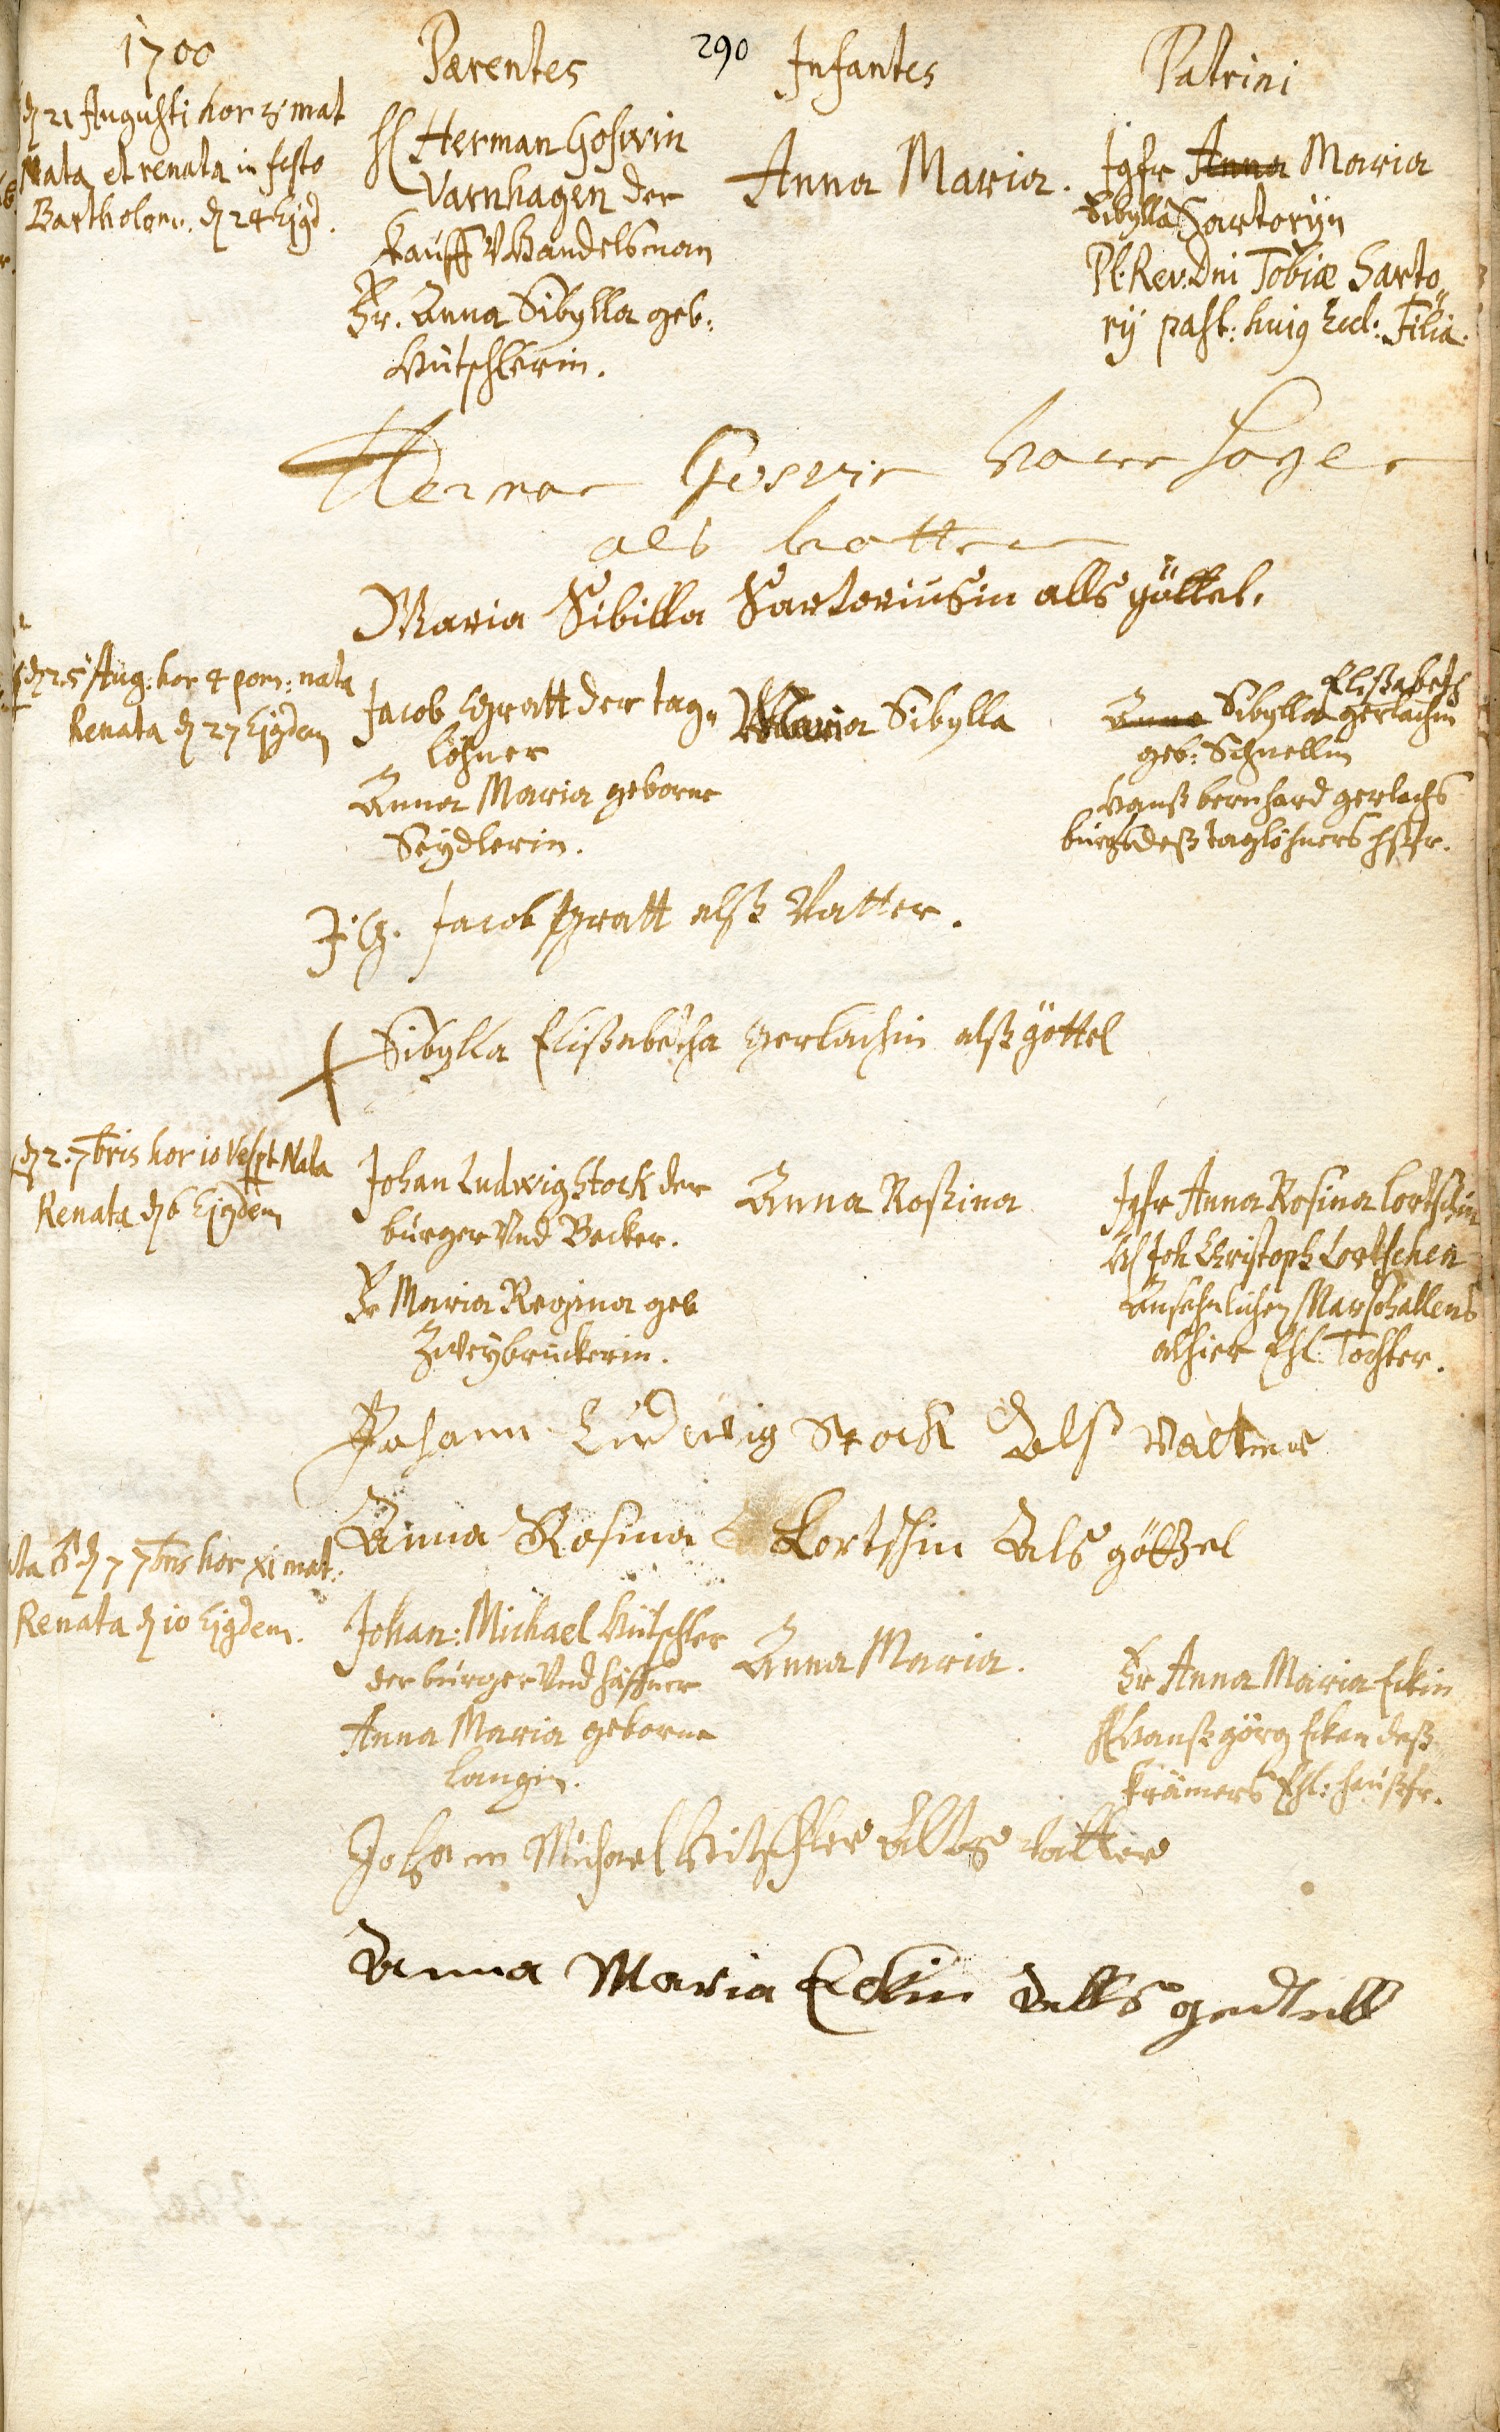 1700 Parentes 290 Infantes Patrini
d 21 Augusti hor 3 mat
Nata et renata in festo
Bartholom. d 24 Ejgd.
H Herman Goswin
Varnhagen der
Kauff V Handelsman
Fr. Anna Sibylla geb:
Hütschlerin.
Anna Maria.
Jgfr Anna Maria
Sibylla Sartoryn
Pl. Rev. Dni Tobiæ Sarto„
rij past: hujg Eccl: Filia.
Herman Goswin Varnhagen
als Vatter
Maria Sibilla Sartoriusin alls göttel,
d 25 Aug: hor 4 pom: nata
Renata d 27 Ejgdem
Jacob Gratt der tag„
löhner
Anna Maria geborne
Seydlerin.
Maria Sibylla
Elißabeth
Anna Sibylla gerlachin
geb: Schnellin
Hanß bernhard gerlachs
burgs deß taglöhners hßfr.
J. G. Jacob Gratt alß Vatter.
Sibylla Elißabetha Gerlachin alß göttel
d 2. 7bris hor 10 Vespt Nata
Renata d 6 Ejgdem
Johan Ludwig Stock der
burger Und Becker.
Fr Maria Regina geb
Zweybruckerin.
Anna Roßina
Jgfr Anna Rosina Lortschin
H Joh Christoph Lortschen
Ansehnlichen Marschallens
alhier Ehl. Tochter.
Johann Ludwig Stock Alß Vatter
Anna Rosina Lortschin Als göttel
d 7 7bris hor XI mat:
Renata d 10 Ejgdem.
Johan: Michael Hütschler
der burger Und haffner
Anna Maria geborne
Langin.
Anna Maria.
Fr Anna Maria Eckin
H Hanß görg Ecken deß
Krämers Ehl: haußfr.
Johann Michael Hitschler Alls Vatter
Anna Maria Eckin Alls gedtell